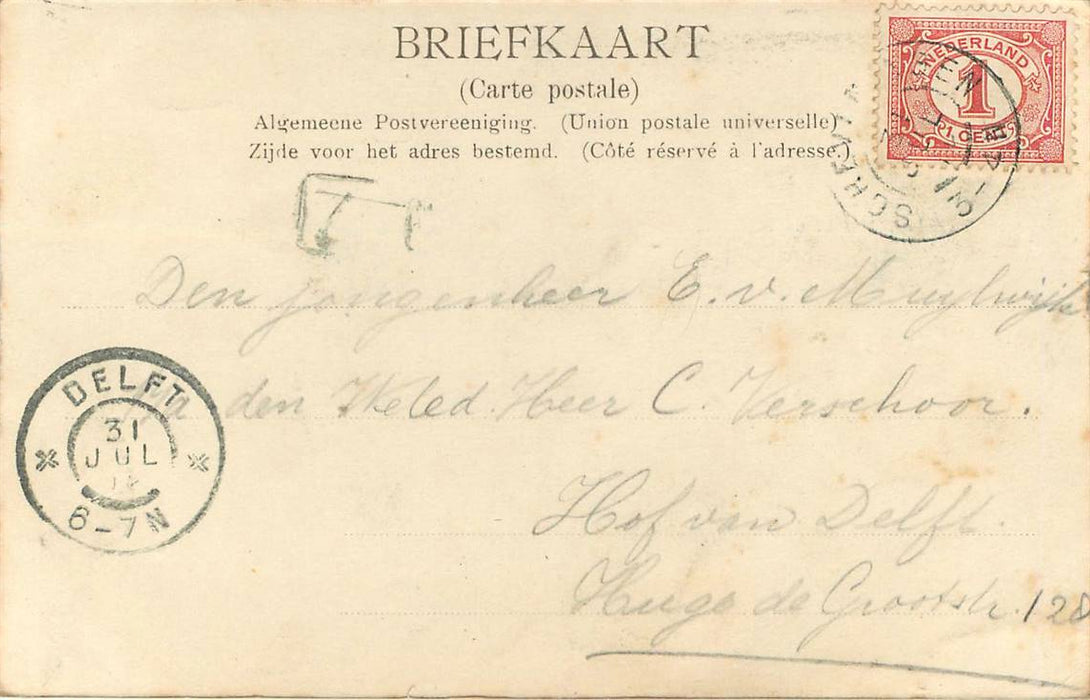 BRIEFKAART
(Carte postale)
Algemeene Postvereeniging. (Union postale universelle)
Zijde voor het adres bestemd. (Côté réservé à l'adresse.)
NEDERLAND
1
1 CENT
T
Den jongenheer E. v. Muylwijk
den Weled. Heer C. Verschoor.
Hof van Delft.
Hugo de Grootstr. 128
DELFT
31
JUL
6-7N